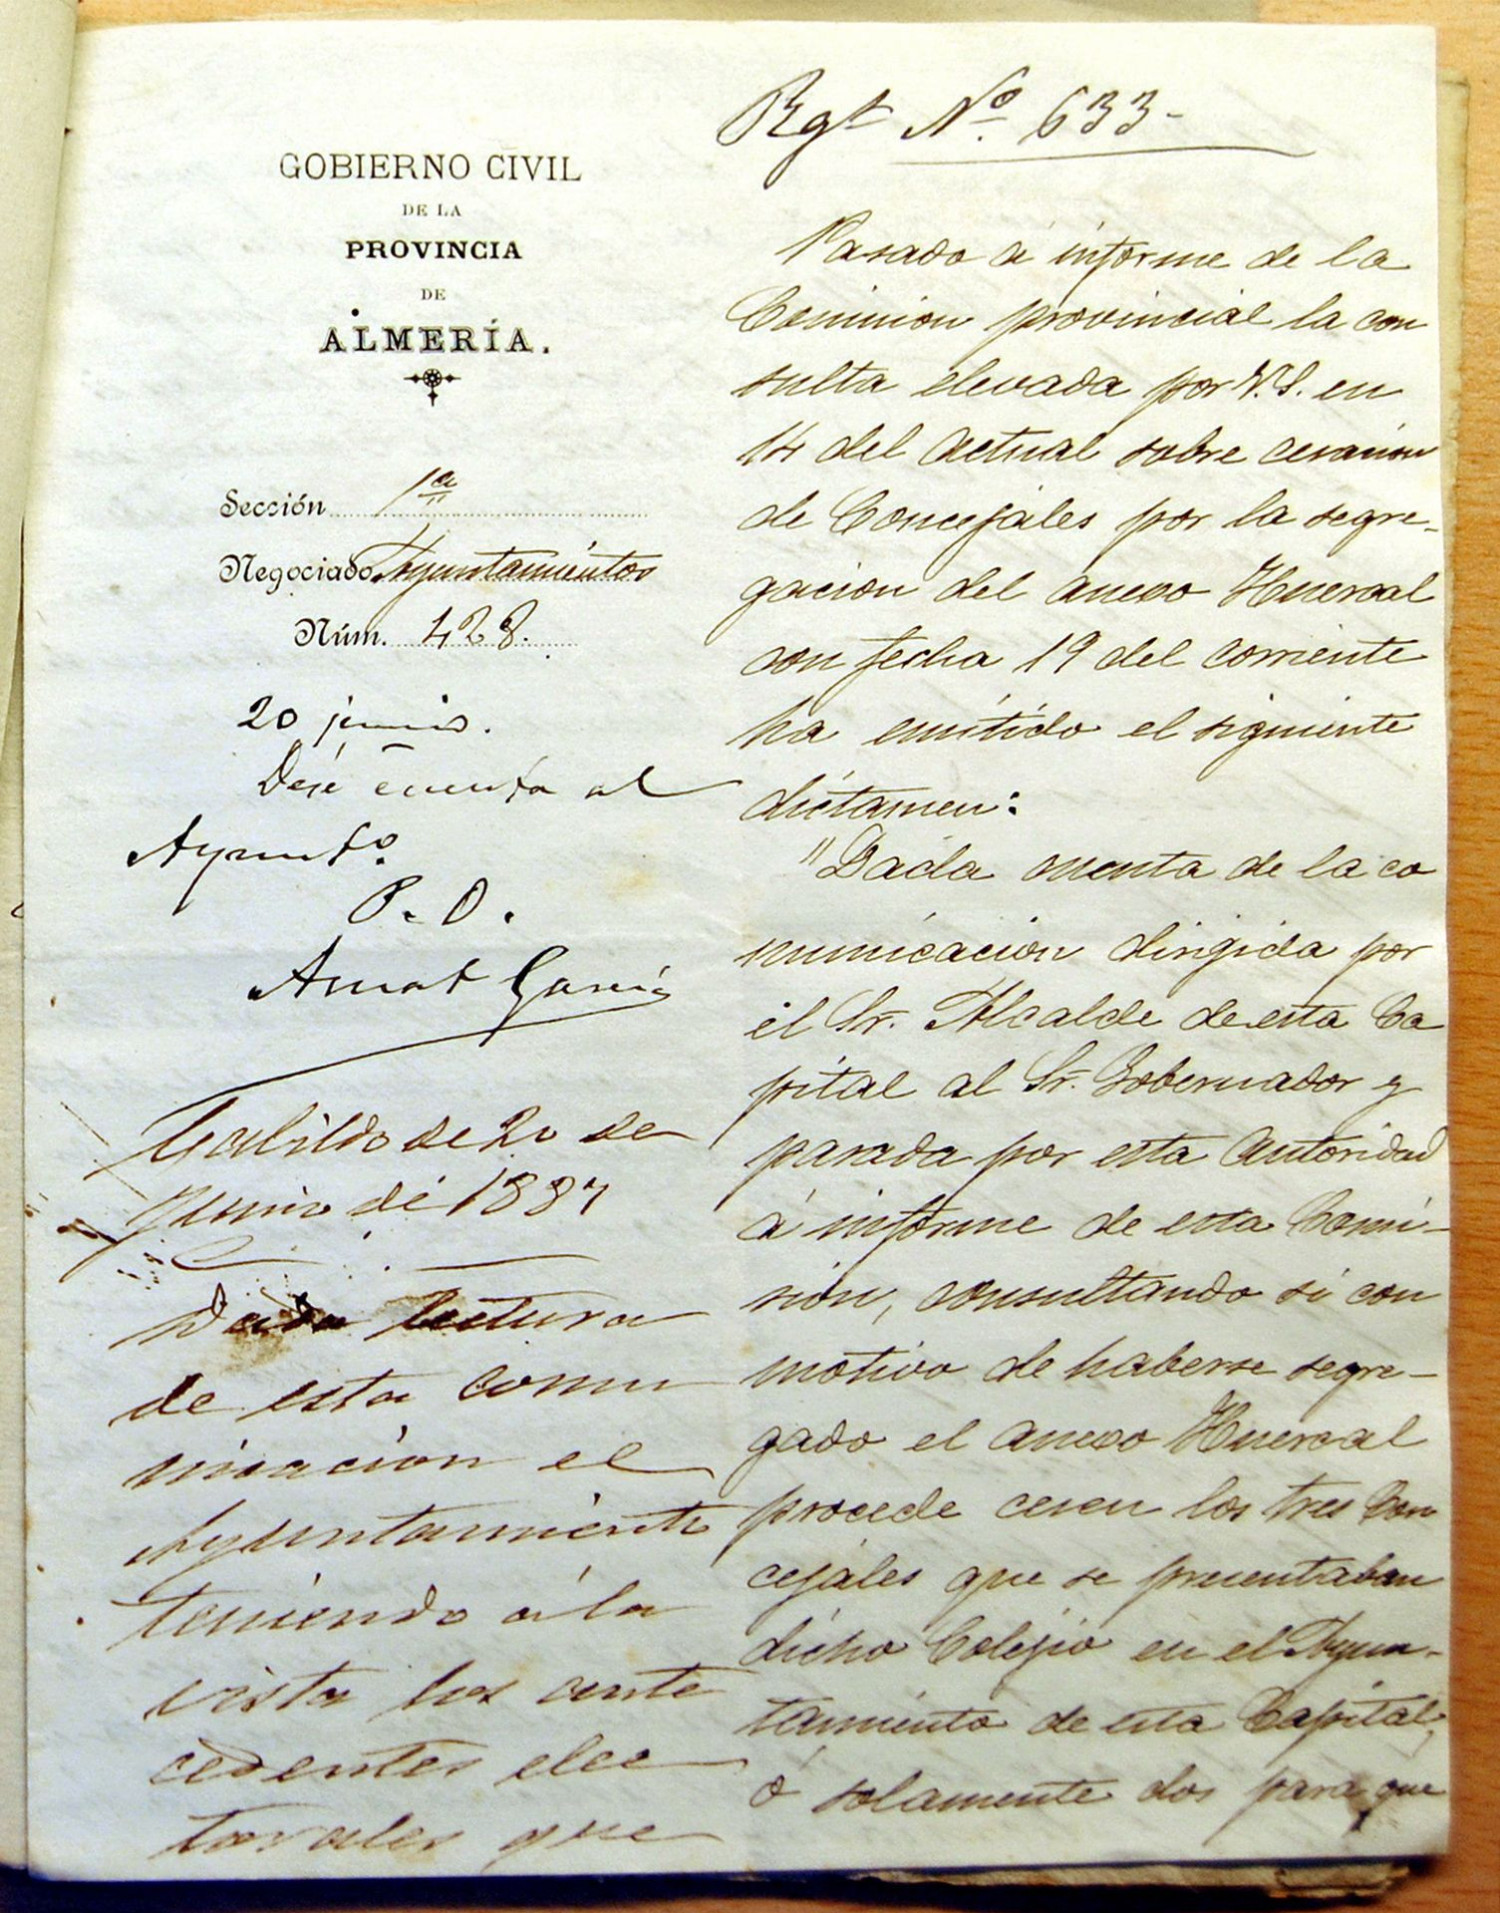 GOBIERNO CIVIL
DE LA
PROVINCIA
DE
ALMERÍA.
Sección 1ª
Negociado Ayuntamientos
Núm. 428.
20 junio.
Dése cuenta al
Ayuntº.
P. O.
Amat García
Cabildo de 20 de
Junio de 1887
Dada lectura
de esta comu
nicacion el
Ayuntamiento
teniendo á la
vista los ante
cedentes elec
torales que
Rgt Nº. 633-
Pasado á informe de la
Comision provincial la con
sulta elevada por V.S. en
14 del actual sobre cesacion
de Concejales por la segre-
gacion del anexo Huercal
con fecha 19 del corriente
ha emitido el siguiente
dictamen:
"Dada cuenta de la co
municacion dirigida por
el Sr. Alcalde de esta Ca
pital al Sr. Gobernador y
pasada por esta Autoridad
á informe de esta Comi-
sion, consultando si con
motivo de haberse segre-
gado el anexo Huercal
procede cesen los tres Con
cejales que se presentaban
dicho Colegio en el Ayun-
tamiento de esta Capital,
ó solamente dos para que